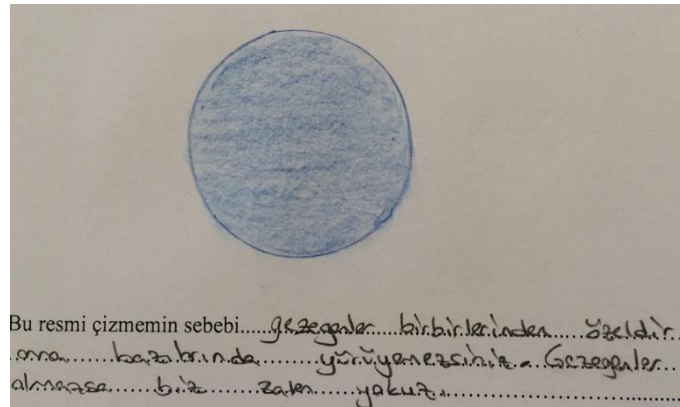 Bu resmi çizmemin sebebi.....gezegenler...birbirlerinden.....özeldir..
ama.......bazılarında.......yürüyemezsiniz.. Gezegenler...
olmazsa......biz.......zaten.....yokuz...............................